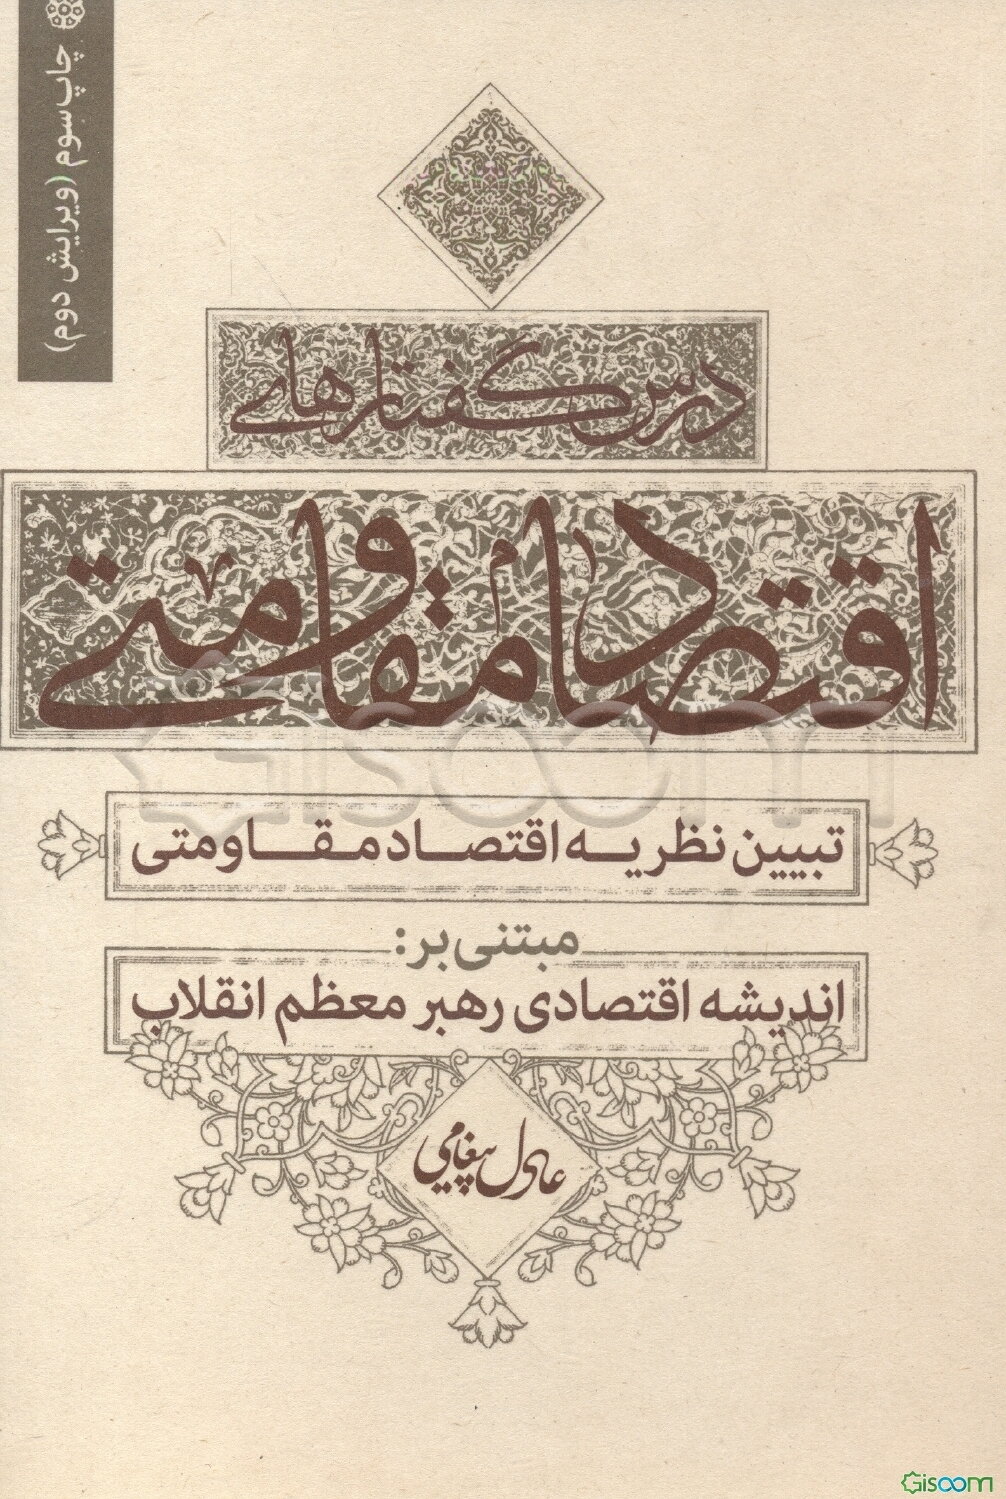 چاپ سوم (ویرایش دوم)
درس گفتارهای
اقتصاد مقاومتی
تبیین نظریه اقتصاد مقاومتی
مبتنی بر:
اندیشه اقتصادی رهبر معظم انقلاب
عادل پیغامی
Gisoom
Gisoom